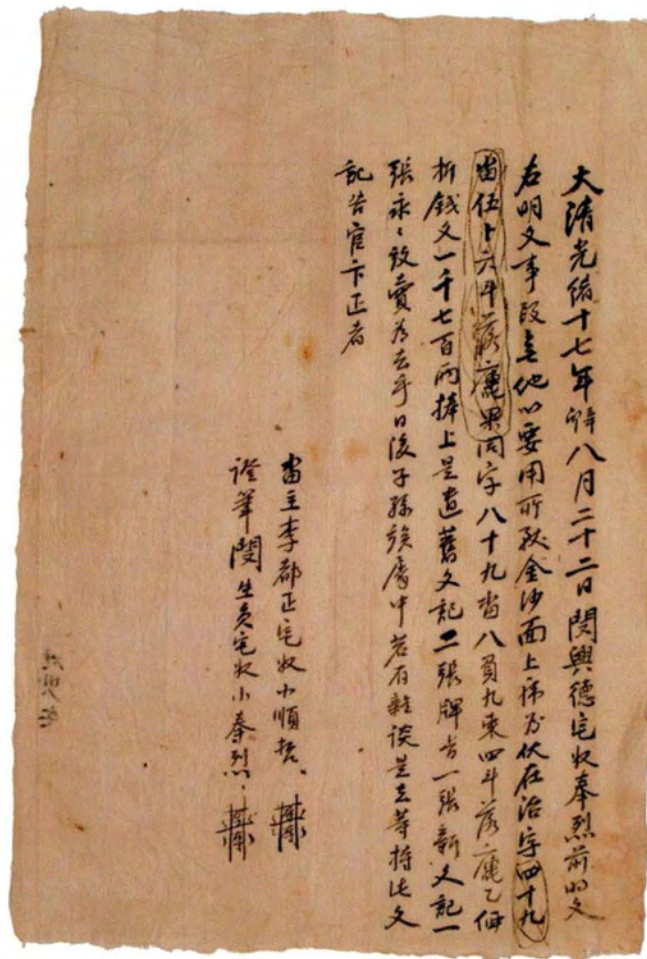 大淸光緖十七年辛卯八月二十二日閔興德宅奴奉烈前明文
右明文事段無他以要用所致金沙面上伏在治字四十九
畓伍卜六斗落廤果同字八十九畓八負九束四斗落廤乙価
折錢文一千七百兩捧上是遣舊文記二張牌旨一張新文記一
張永〻放賣爲去乎日後子孫族屬中若有雜談是去等持此文
記告官卞正者
畓主李都正宅奴小順哲
證筆閔生員宅奴小奉烈